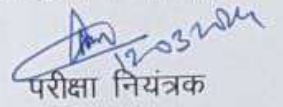 12032024
परीक्षा नियंत्रक